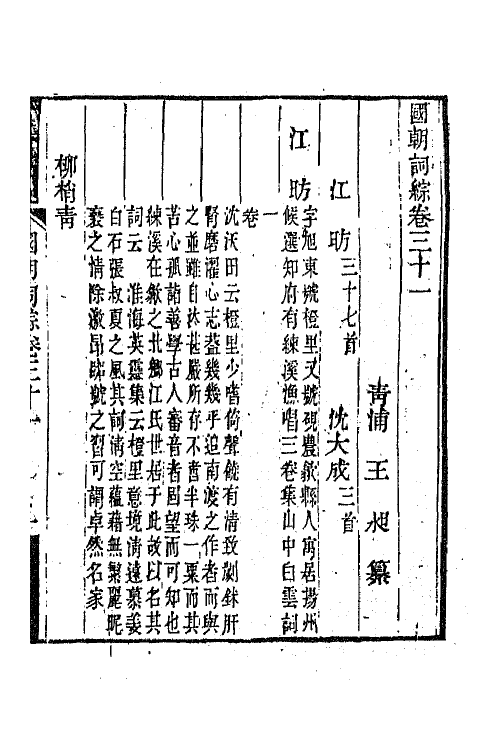 國朝詞綜卷三十一
青浦 王 昶 纂
江 昉三十七首 沈大成三首
江 昉字旭東號橙里又號硯農歙縣人寓居揚州
候選知府有練溪漁唱三卷集山中白雲詞
一卷
沈沃田云橙里少嗜倚聲饒有清致劌鉥肝
腎磨濯心志葢幾幾乎追南渡之作者而與
之並雖自汰甚嚴所存不啻半珠一粟而其
苦心孤詣善學古人審音者固望而可知也
練溪在歙之北鄉江氏世居于此故以名其
詞云 淮海英靈集云橙里意境清遠慕姜
白石張叔夏之風其詞清空蘊藉無繁麗昵
褻之情除激昂呼號之習可謂卓然名家
柳梢青